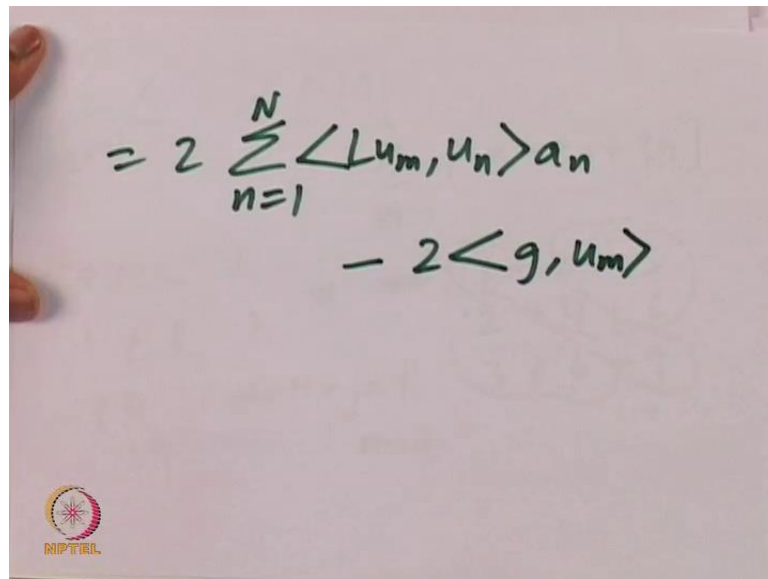 = 2 N∑n=1 <Lu_m, u_n> a_n
− 2 <g, u_m>
NPTEL